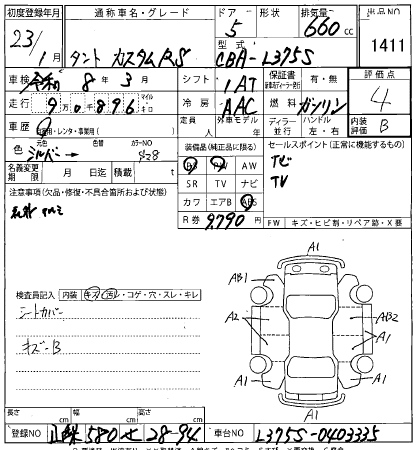 初度登録年月 通称車名・グレード ドア 形状 排気量 出品NO
23/1月 タント カスタムRS 5 660cc 1411
型式 CBA-L375S
車検 令和 8年 3月 シフト 1AT 保証書 有・無 評価点 4
走行 90896 マイル キロ 冷房 AAC 燃料 ガソリン
車歴 自家用・レンタ・事業用( ) 定員 人 外車モデル 年 ディーラー 並行 ハンドル 左・右 内装評価 B
色 元色 シルバー→ 色替 カラーNO S28
装備品(純正品に限る) セールスポイント(正常に機能するもの)
名義変更期限 月 日迄 積載 t
PS PW AW ナビ
SR TV ナビ TV
注意事項(欠品・修復・不具合箇所および状態)
カワ エアB ABS
R券 9,790円 FW キズ・ヒビ割・リペア跡・X要
検査員記入 内装 キズ・汚・コゲ・穴・スレ・キレ
シートカバー
キズ-B
A1
AB1 A1
A2 AB2
A1
A1 A1
A1
長さ cm 幅 cm 高さ cm
登録NO 580 せ 28-94 車台NO L375S-0403335